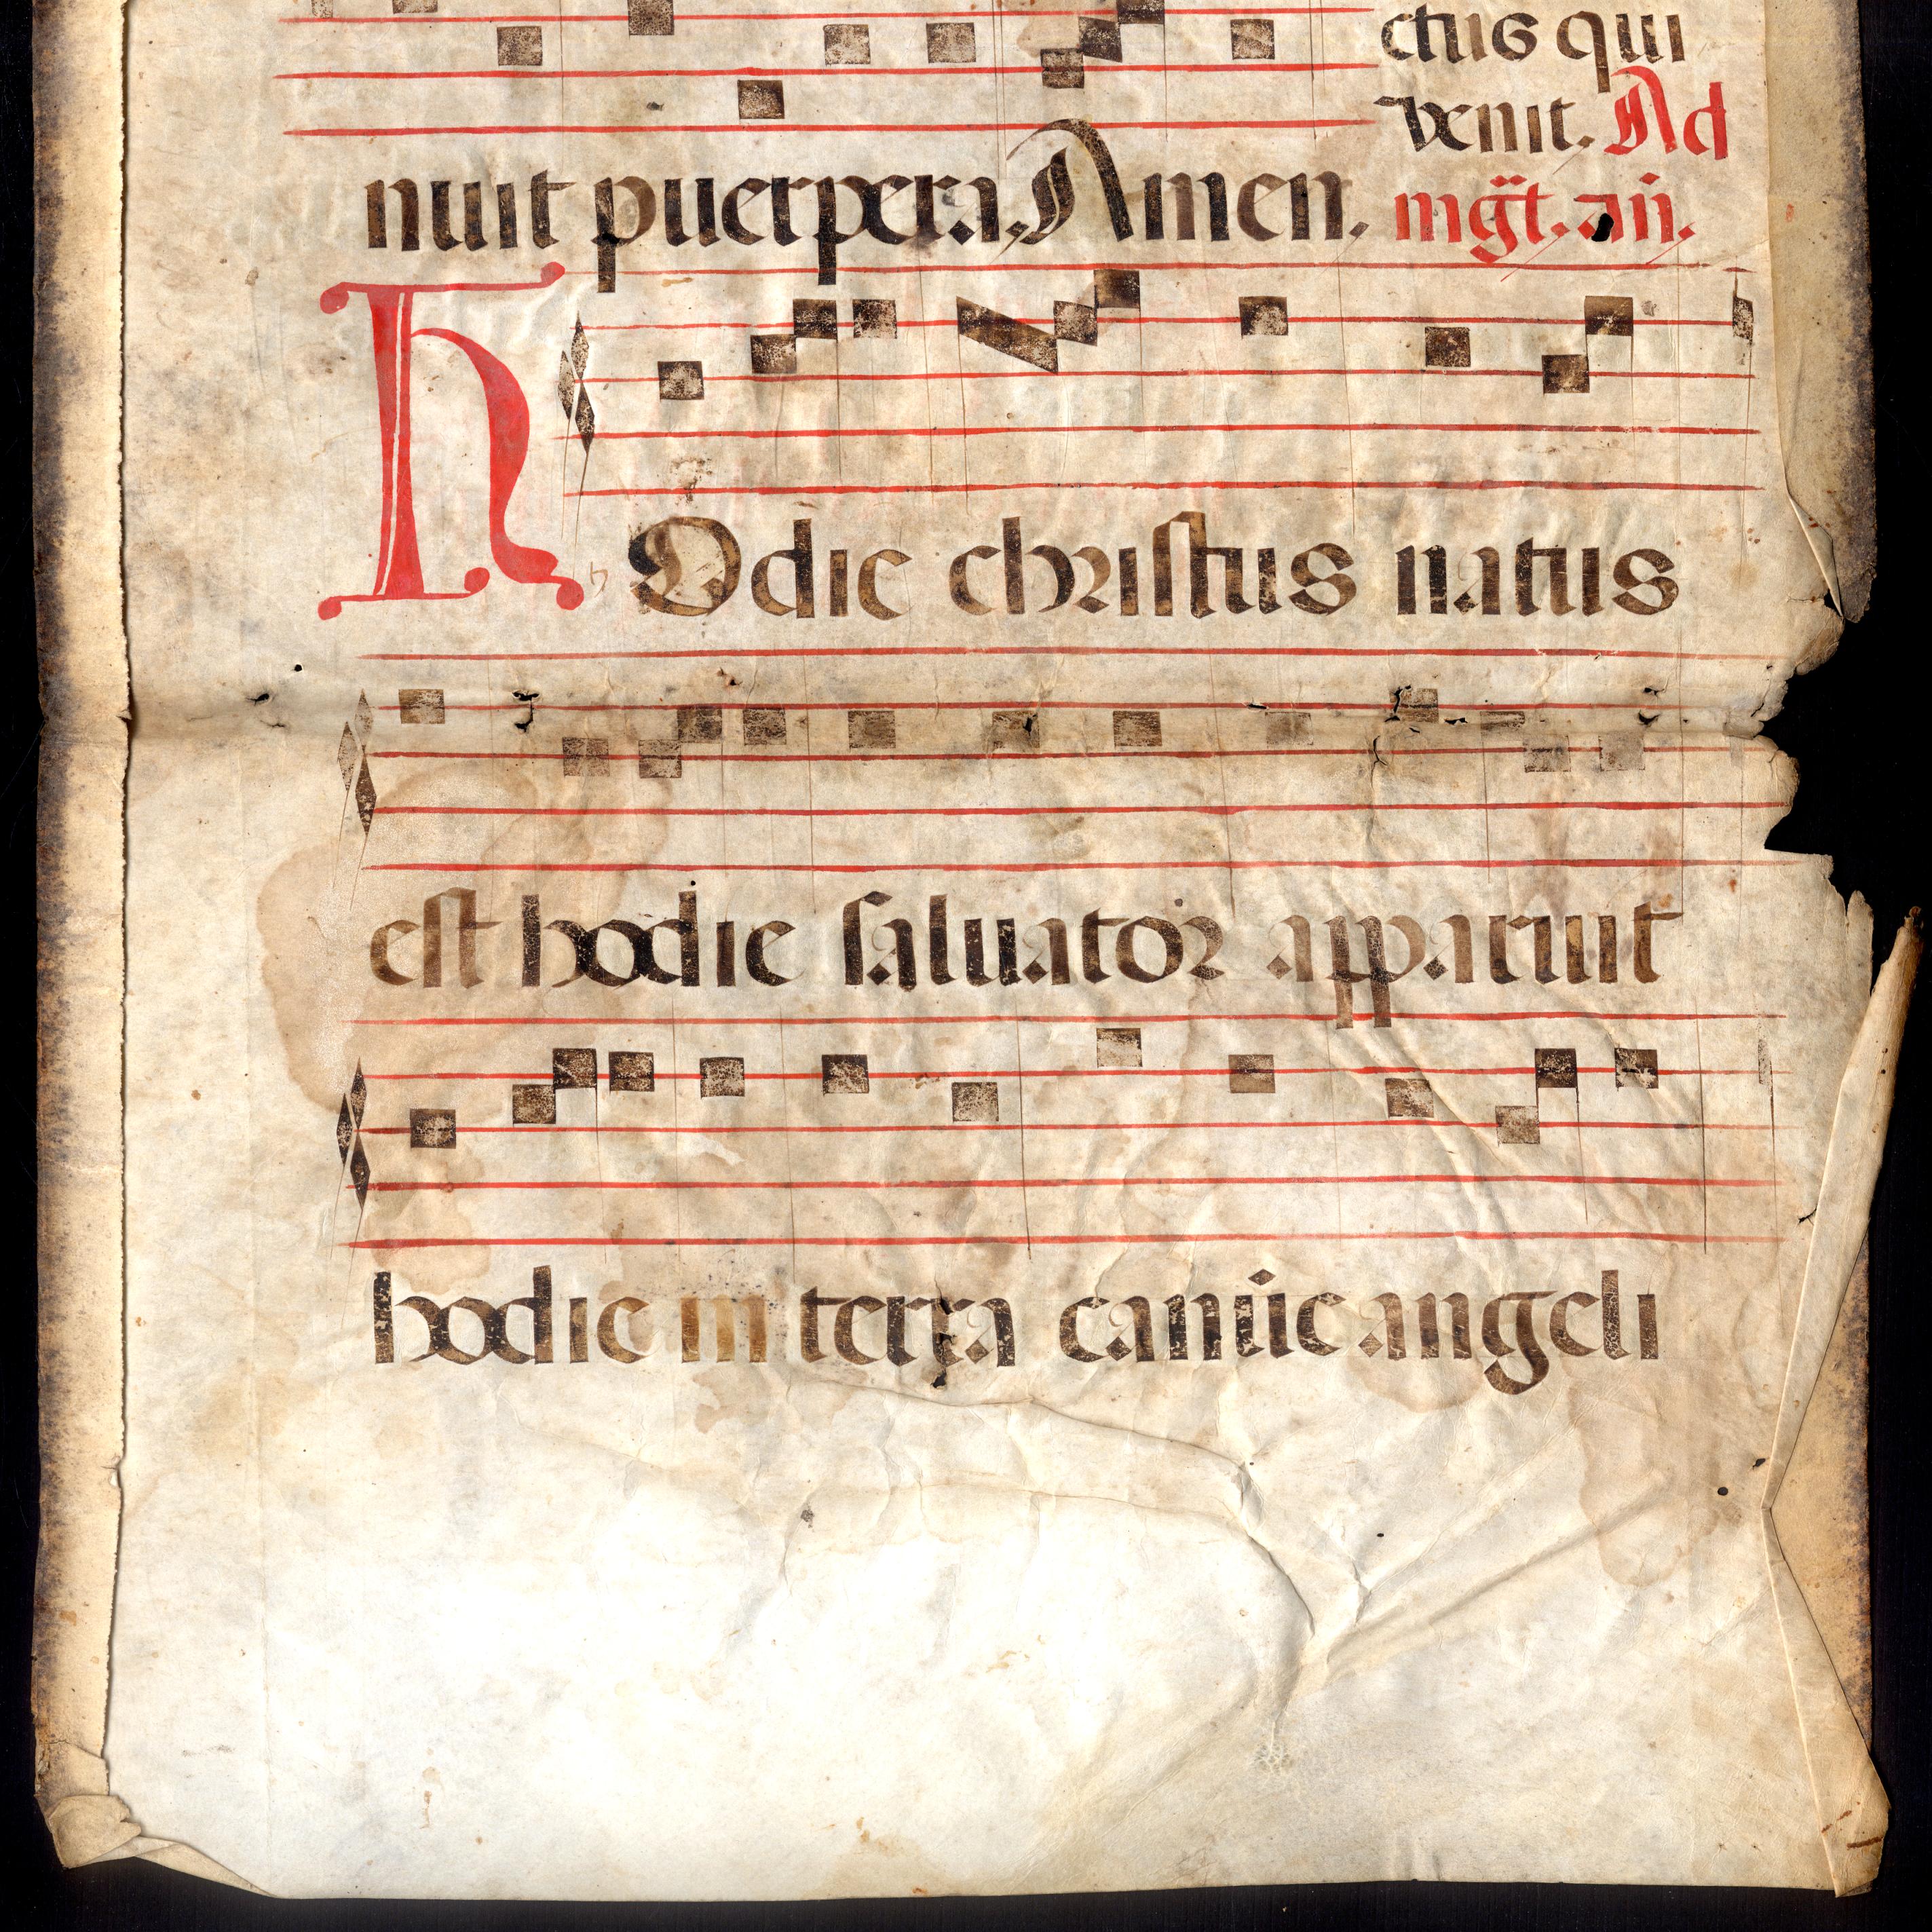 ctus qui
venit. Ad
nuit puerpera. Amen. mg̃t. añ.
HOdie christus natus
est hodie saluator apparuit
hodie in terra canũt angeli